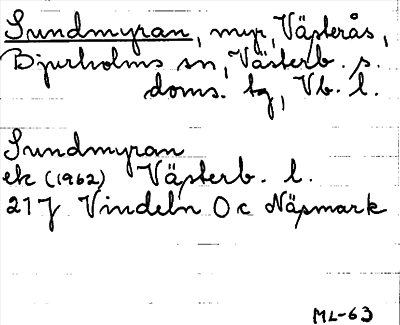 Sundmyran, myr, Västerås,
Bjurholms sn, Västerb. s.
doms. tg, Vb. l.
Sundmyran
ek (1962) Västerb. l.
21 J Vindeln 0 c Näsmark
ML-63